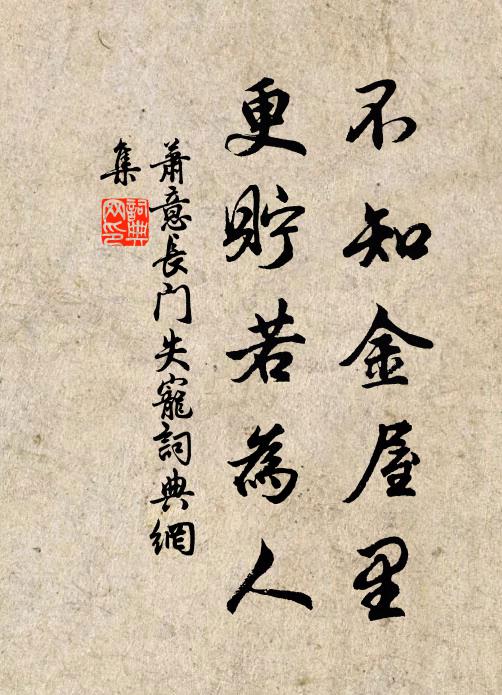 不知金屋里
更貯若為人
蕭意長門失寵詞典網
集
詞典
网印